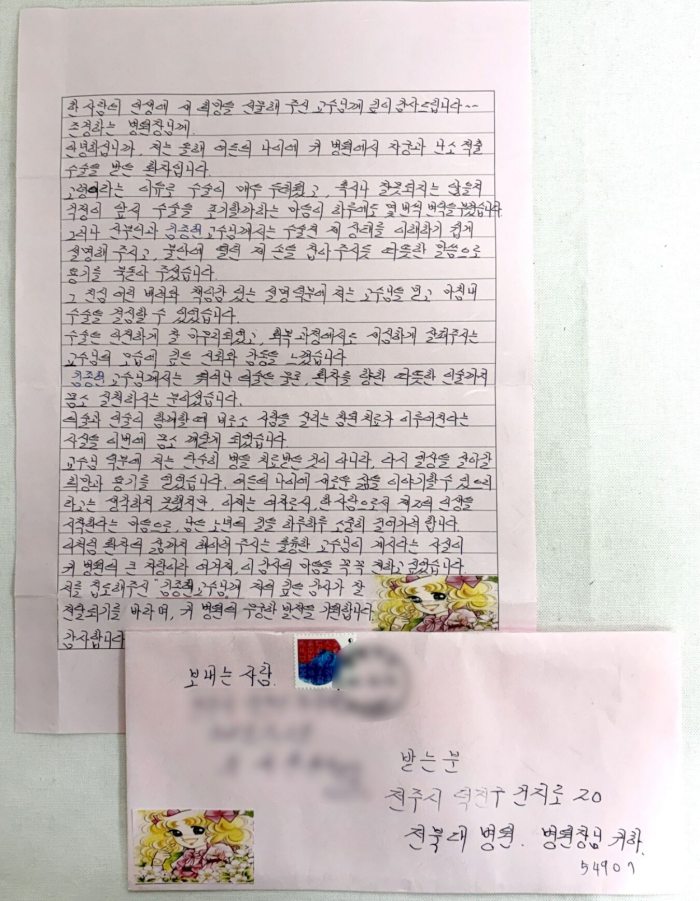 한 사람의 인생에 새 희망을 선물해 주신 교수님께 깊이 감사드립니다~~
존경하는 병원장님께.
안녕하십니까, 저는 올해 여든의 나이에 귀 병원에서 자궁과 난소 적출
수술을 받은 환자입니다.
고령이라는 이유로 수술이 매우 두려웠고, 혹시나 잘못되지는 않을지
걱정이 앞서 수술을 포기할까하는 마음이 하루에도 몇번씩
그러나 산부인과 김종헌 교수님께서는 수술전 제 상태를 이해하기 쉽게
설명해 주시고, 불안에 떨던 제 손을 잡아 주시듯 따뜻한 말씀으로
용기를 북돋아 주셨습니다.
그 진심 어린 배려와 책임감 있는 설명 덕분에 저는 교수님을 믿고 마침내
수술을 결심할 수 있었습니다.
수술은 안전하게 잘 마무리되었고, 회복 과정에서도 세심하게 살펴주시는
교수님의 모습에 깊은 신뢰와 감동을 느꼈습니다.
김종헌 교수님께서는 뛰어난 의술은 물론, 환자를 향한 따뜻한 인술까지
몸소 실천하시는 분이셨습니다.
의술과 인술이 함께할 때 비로소 사람을 살리는 참된 치료가 이루어진다는
사실을 이번에 몸소 깨닫게 되었습니다.
교수님 덕분에 저는 단순히 병을 치료받은 것이 아니라, 다시 일상을 살아갈
희망과 용기를 얻었습니다. 여든의 나이에 새로운 삶을 이야기할 수 있으리
라고는 생각하지 못했지만, 이제는 여자로서, 한 사람으로서 제2의 인생을
시작한다는 마음으로, 남은 노년의 길을 하루하루 소중히 걸어가려 합니다
이처럼 환자의 삶까지 헤아려 주시는 훌륭한 교수님이 계시다는 사실이
귀 병원의 큰 자랑이라 여겨져, 이 감사의 마음을 꼭 전하고 싶었습니다.
저를 집도해주신 김종헌교수님께 저의 깊은 감사가 잘
전달되기를 바라며, 귀 병원의 무궁한 발전을 기원합니다.
감사합니다
보내는 사람.
받는 분
전주시 덕진구 건지로 20
전북대 병원. 병원장님 귀하.
54907